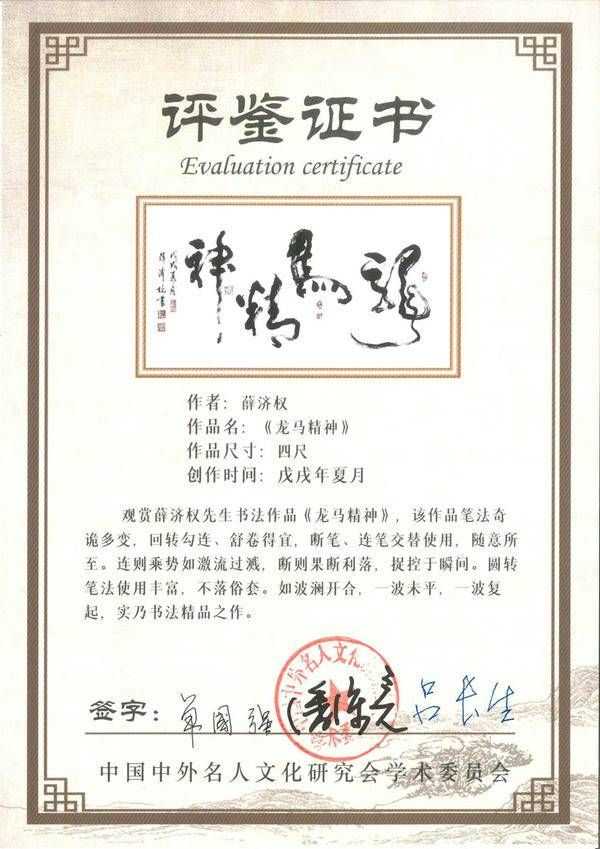 评鉴证书
Evaluation certificate
龙马精神
戊戌夏月
薛济权书
作者：薛济权
作品名：《龙马精神》
作品尺寸：四尺
创作时间：戊戌年夏月
观赏薛济权先生书法作品《龙马精神》，该作品笔法奇
诡多变，回转勾连、舒卷得宜，断笔、连笔交替使用，随意所
至。连则乘势如激流过溅，断则果断利落，捉控于瞬间。圆转
笔法使用丰富，不落俗套。如波澜开合，一波未平，一波复
起，实乃书法精品之作。
签字：单国强 潘深亮 吕长生
中国中外名人文化研究会学术委员会